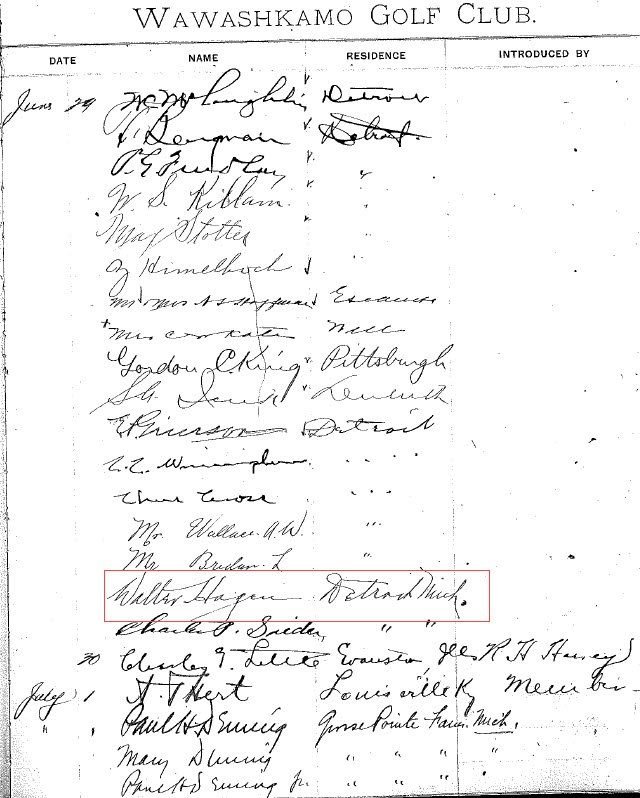 WAWASHKAMO GOLF CLUB.
DATE NAME RESIDENCE INTRODUCED BY
June 29 Detroit
Bergman Detroit.
P. E. Findlay "
W. S. Killam. "
May Stotter "
Himelhoch "
Mr Mrs Escanaba
Mrs
Gordon C King Pittsburgh
Duluth
E Grierson Detroit
" " "
Cross " " "
Mr. Wallace. A. W. "
Mr. L "
Walter Hagen Detroit Mich.
Charles P. " "
30 Charley E. Little Evanston, Ills R H Harvey
July 1 A. T Hert Louisville Ky Member
" " Paul H Deming Grosse Pointe Farms Mich.
Mary Deming " " " "
Paul H Deming Jr. " " " "